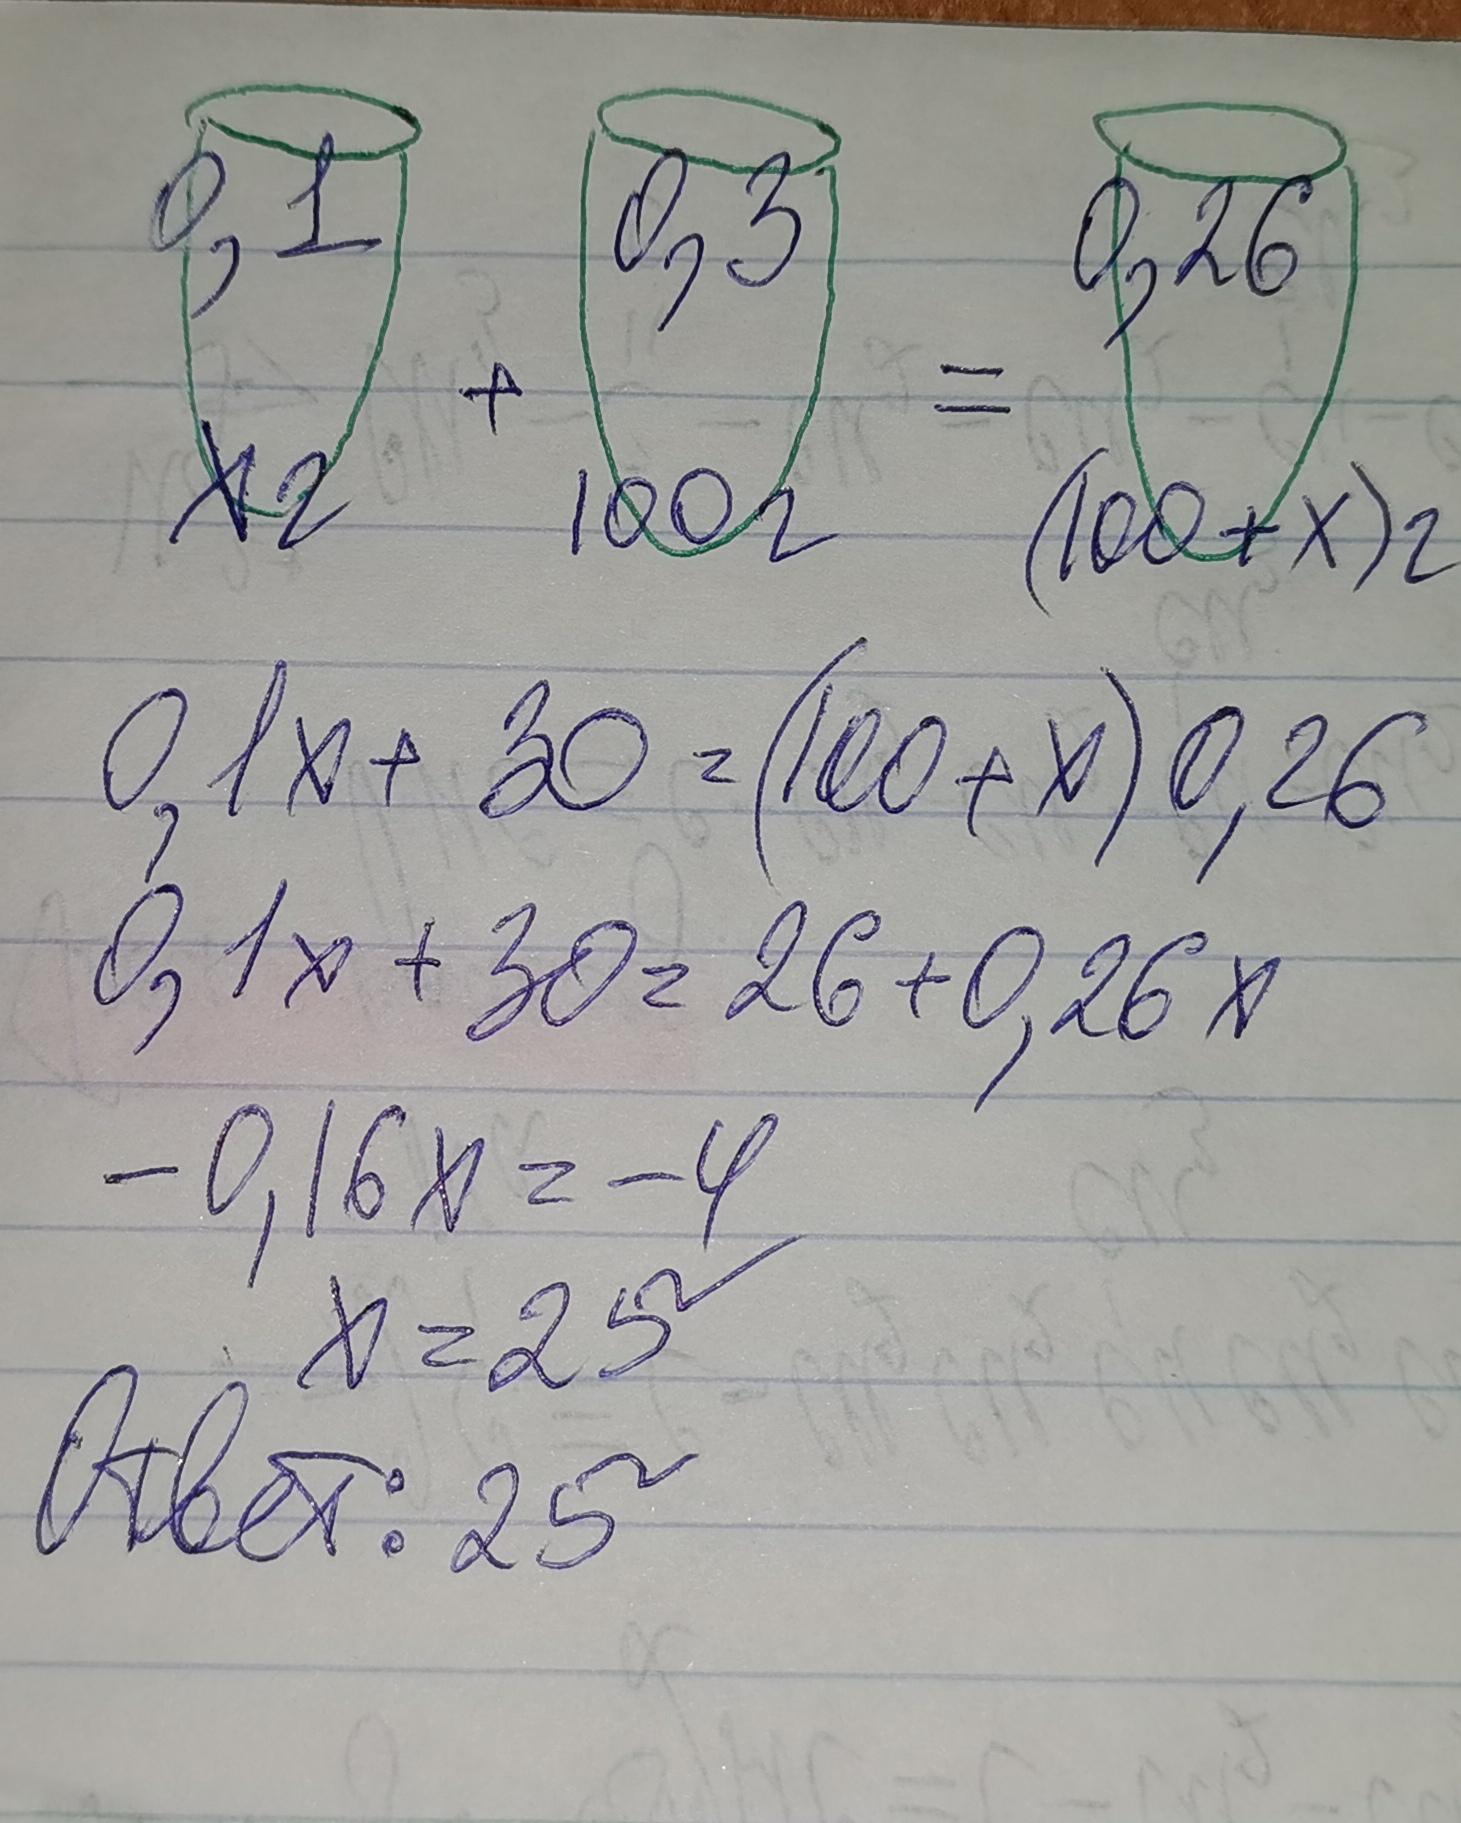 0,1 0,3 0,26
+ =
xг 100г (100+x)г
0,1x+30=(100+x)0,26
0,1x+30=26+0,26x
-0,16x=-4
x=25
Ответ: 25